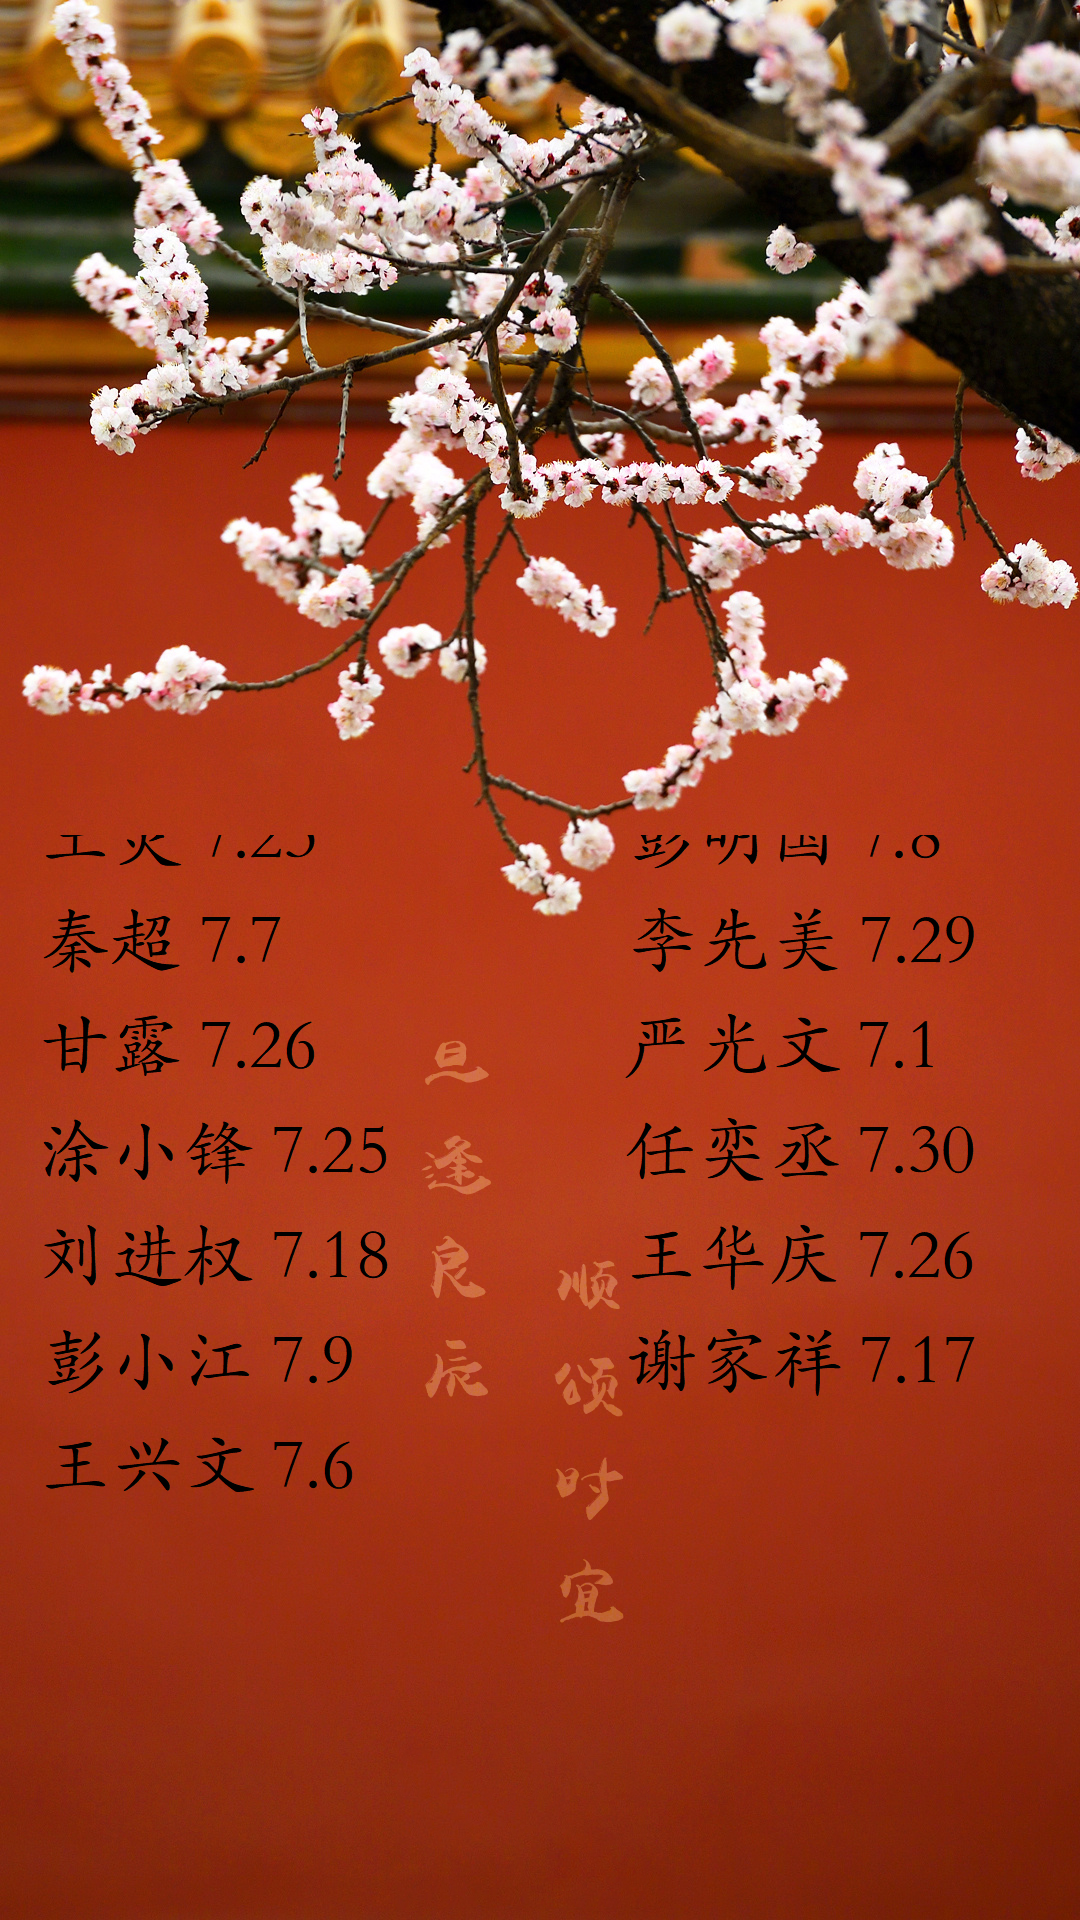 秦超 7.7
甘露 7.26
涂小锋 7.25
刘进权 7.18
彭小江 7.9
王兴文 7.6
旦逢良辰
顺颂时宜
7.8
李先美 7.29
严光文 7.1
任奕丞 7.30
王华庆 7.26
谢家祥 7.17